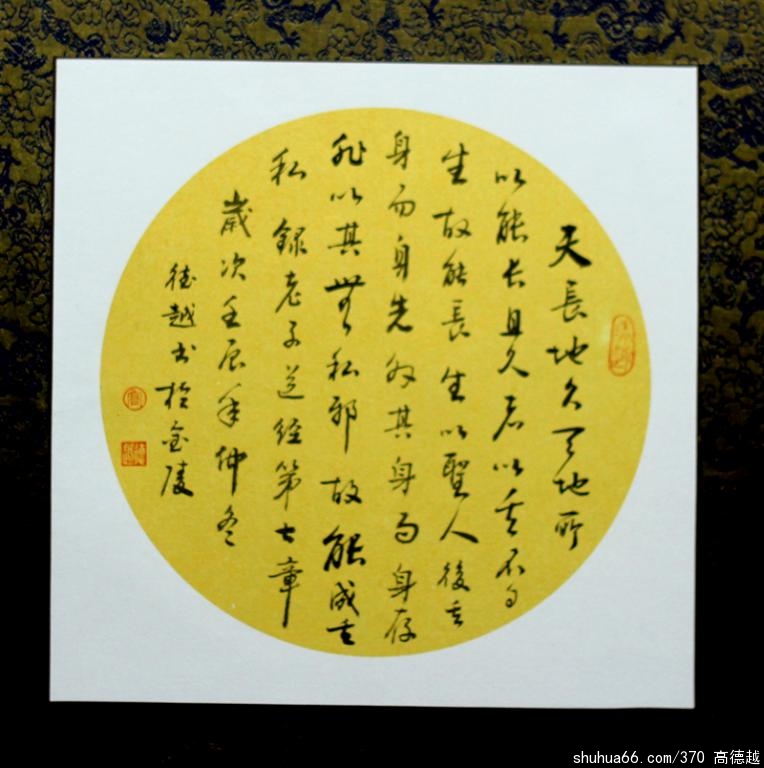 天長地久天地所
以能长且久者以其不自
生故能長生以聖人後其
身而身先外其身而身存
非以其無私邪故能成其
私 録老子道經第七章
歲次壬辰年仲冬
德越书於金陵
shuhua66.com/370 高德越